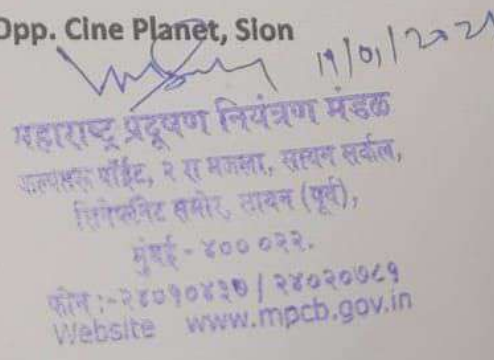 Opp. Cine Planet, Sion
19/01/2021
महाराष्ट्र प्रदूषण नियंत्रण मंडळ
कल्पतरू पॉईंट, २ रा मजला, सायन सर्कल,
सिनेप्लॅनेट समोर, सायन (पूर्व),
मुंबई - ४०० ०२२.
फोन :- २४०१०४३७ / २४०२०७८१
Website www.mpcb.gov.in